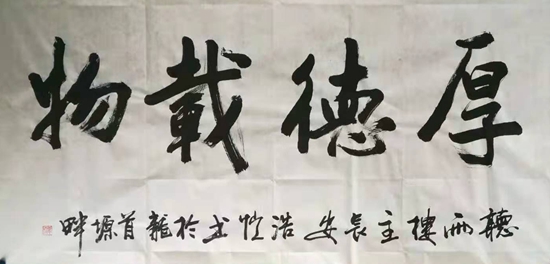 厚德載物
聽雨樓主長安浩恺书於龍首塬畔